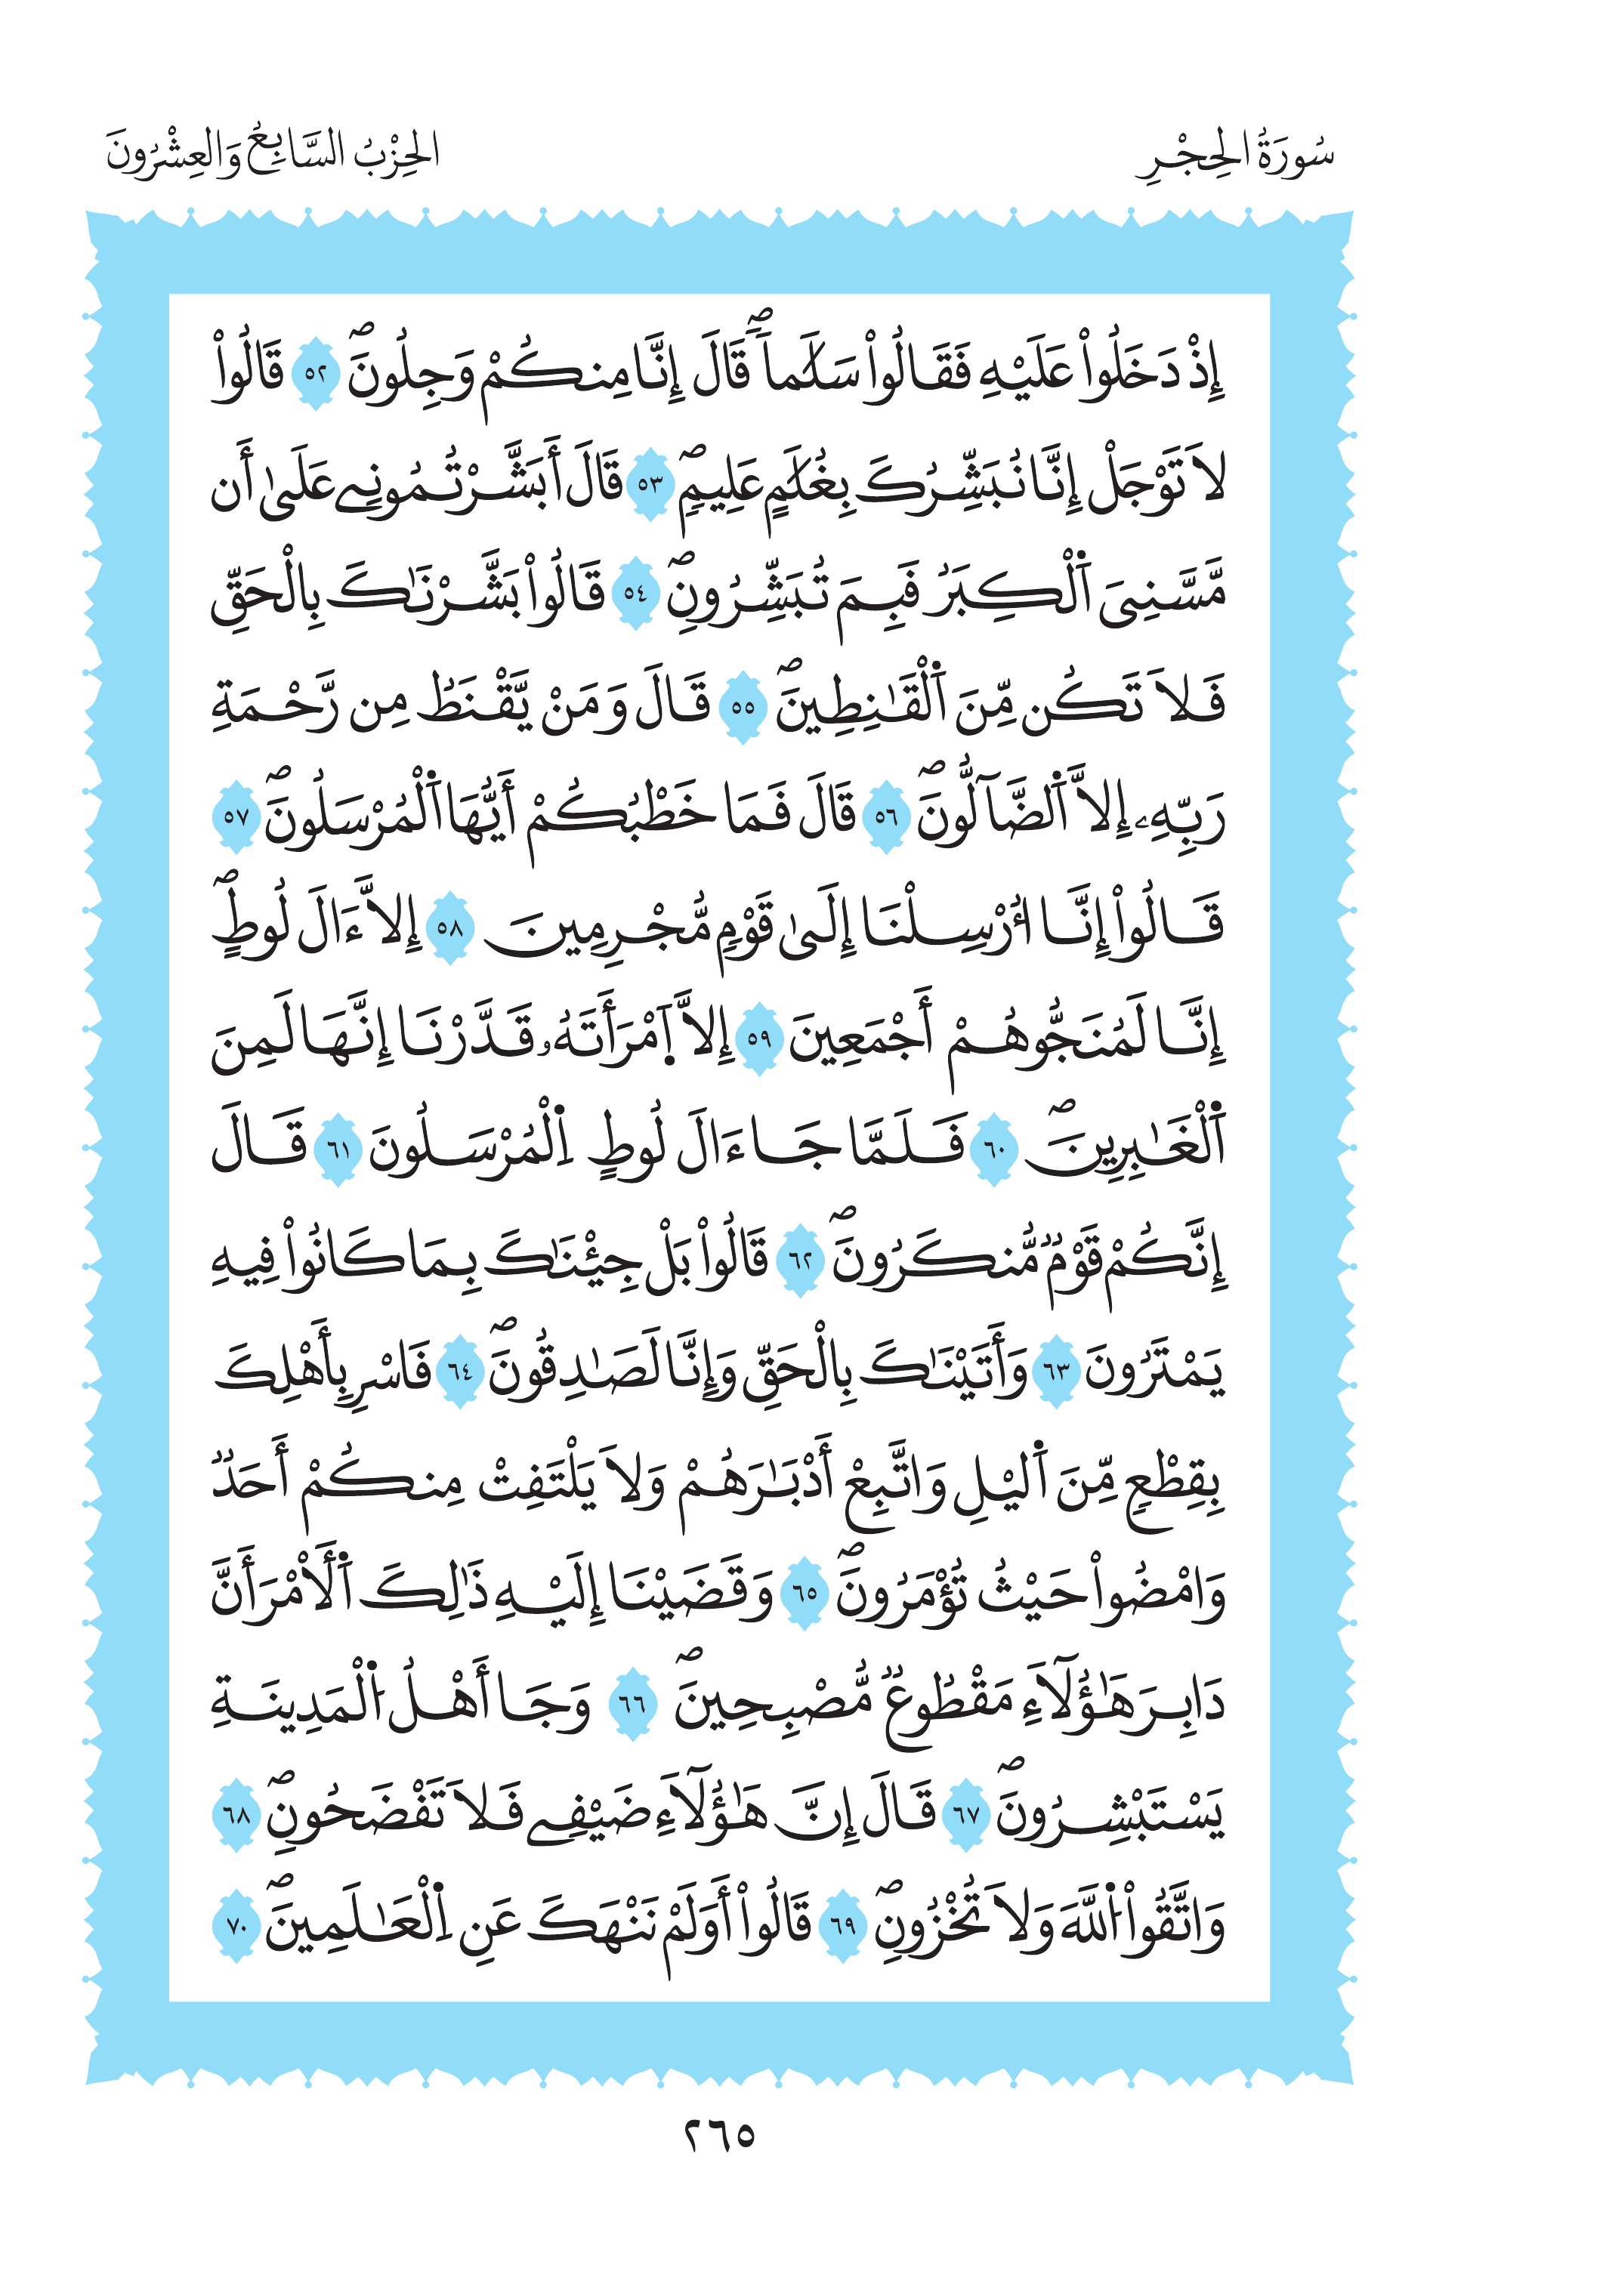 سُورَةُ الحِجْرِ
الحِزْبُ السَّابِعُ وَالعِشْرُونَ
إِذْ دَخَلُواْ عَلَيْهِ فَقَالُواْ سَلَٰماٗۖ قَالَ إِنَّا مِنكُمْ وَجِلُونَۖ ٥٢ قَالُواْ
لَا تَوْجَلْ إِنَّا نُبَشِّرُكَ بِغُلَٰمٍ عَلِيمٖۖ ٥٣ قَالَ أَبَشَّرْتُمُونِے عَلَىٰ أَن
مَّسَّنِىَ اَ۬لْكِبَرُ فَبِمَ تُبَشِّرُونِۖ ٥٤ قَالُواْ بَشَّرْنَٰكَ بِالْحَقِّ
فَلَا تَكُن مِّنَ اَ۬لْقَٰنِطِينَۖ ٥٥ قَالَ وَمَنْ يَّقْنَطُ مِن رَّحْمَةِ
رَبِّهِۦ إِلَّا اَ۬لضَّآلُّونَۖ ٥٦ قَالَ فَمَا خَطْبُكُمْ أَيُّهَا اَ۬لْمُرْسَلُونَۖ ٥٧
قَالُواْ إِنَّا أُرْسِلْنَا إِلَىٰ قَوْمٖ مُّجْرِمِينَ ٥٨ إِلَّا ءَالَ لُوطٍۖ
إِنَّا لَمُنَجُّوهُمْ أَجْمَعِينَ ٥٩ إِلَّا اَ۪مْرَأَتَهُۥ قَدَّرْنَا إِنَّهَا لَمِنَ
اَ۬لْغَٰبِرِينَۖ ٦٠ فَلَمَّا جَا ءَالَ لُوطٍ اِ۬لْمُرْسَلُونَ ٦١ قَالَ
إِنَّكُمْ قَوْمٞ مُّنكَرُونَۖ ٦٢ قَالُواْ بَلْ جِئْنَٰكَ بِمَا كَانُواْ فِيهِ
يَمْتَرُونَ ٦٣ وَأَتَيْنَٰكَ بِالْحَقِّ وَإِنَّا لَصَٰدِقُونَۖ ٦٤ فَاسْرِ بِأَهْلِكَ
بِقِطْعٖ مِّنَ اَ۬ليْلِ وَاتَّبِعْ أَدْبَٰرَهُمْ وَلَا يَلْتَفِتْ مِنكُمْ أَحَدٞ
وَامْضُواْ حَيْثُ تُؤْمَرُونَۖ ٦٥ وَقَضَيْنَا إِلَيْهِ ذَٰلِكَ اَ۬لَامْرَ أَنَّ
دَابِرَ هَٰؤُلَآءِ مَقْطُوعٞ مُّصْبِحِينَۖ ٦٦ وَجَا أَهْلُ اُ۬لْمَدِينَةِ
يَسْتَبْشِرُونَۖ ٦٧ قَالَ إِنَّ هَٰؤُلَآءِ ضَيْفِے فَلَا تَفْضَحُونِۖ ٦٨
وَاتَّقُواْ اُ۬للَّهَ وَلَا تُخْزُونِۖ ٦٩ قَالُواْ أَوَلَمْ نَنْهَكَ عَنِ اِ۬لْعَٰلَمِينَۖ ٧٠
٢٦٥